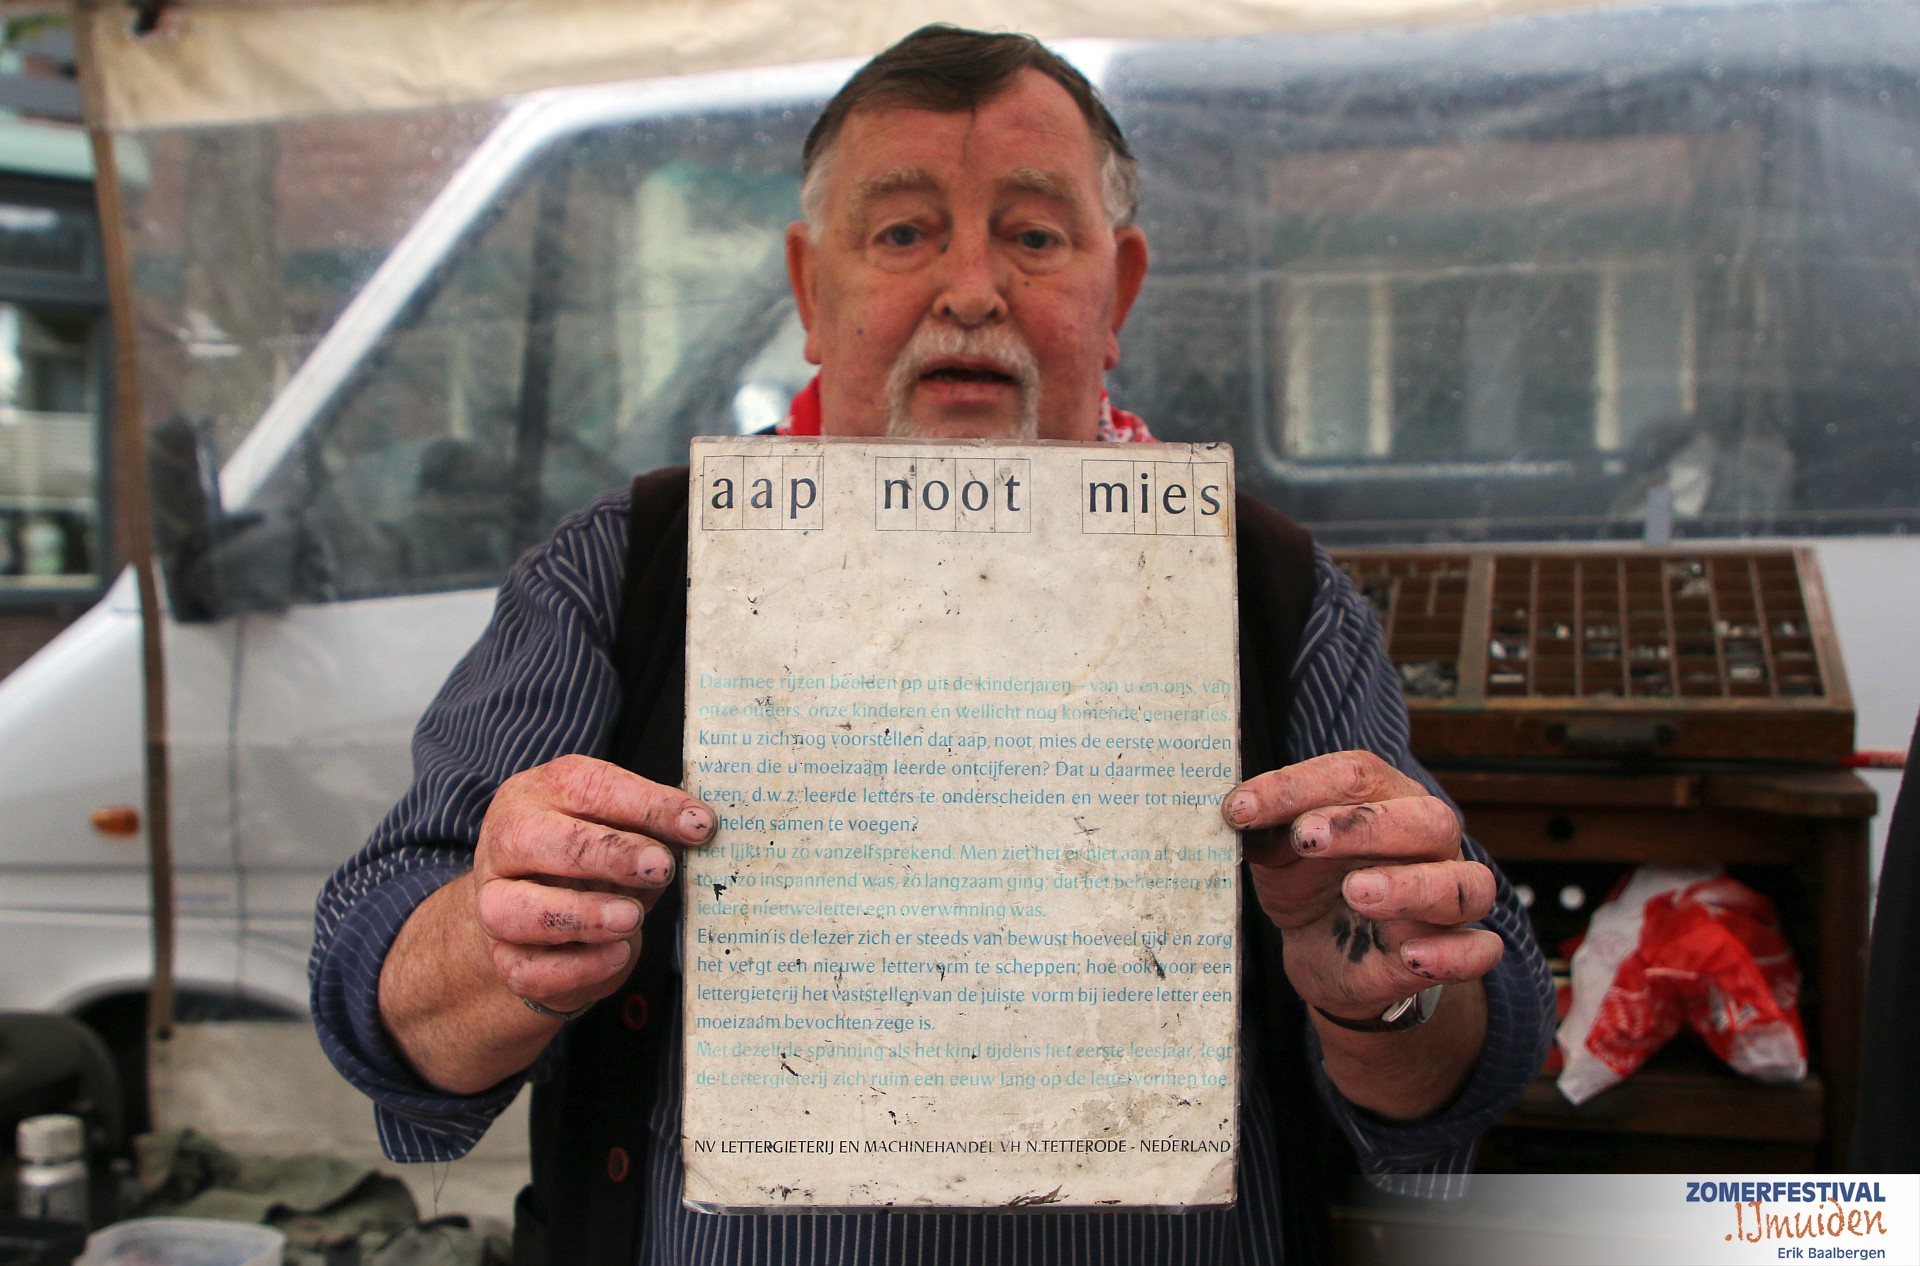 aap noot mies
Daarmee rijzen beelden op uit de kinderjaren – van u en ons, van
onze ouders, onze kinderen en wellicht nog komende generaties.
Kunt u zich nog voorstellen dat aap, noot, mies de eerste woorden
waren die u moeizaam leerde ontcijferen? Dat u daarmee leerde
lezen, d.w.z. leerde letters te onderscheiden en weer tot nieuwe
helen samen te voegen?
Het lijkt nu zo vanzelfsprekend. Men ziet het er niet aan af, dat het
toen zo inspannend was, zó langzaam ging; dat het beheersen van
iedere nieuwe letter een overwinning was.
Evenmin is de lezer zich er steeds van bewust hoeveel tijd en zorg
het vergt een nieuwe lettervorm te scheppen; hoe ook voor een
lettergieterij het vaststellen van de juiste vorm bij iedere letter een
moeizaam bevochten zege is.
Met dezelfde spanning als het kind tijdens het eerste leesjaar, legt
de Lettergieterij zich ruim een eeuw lang op de lettervormen toe.
NV LETTERGIETERIJ EN MACHINEHANDEL VH N. TETTERODE - NEDERLAND
ZOMERFESTIVAL
.IJmuiden
Erik Baalbergen